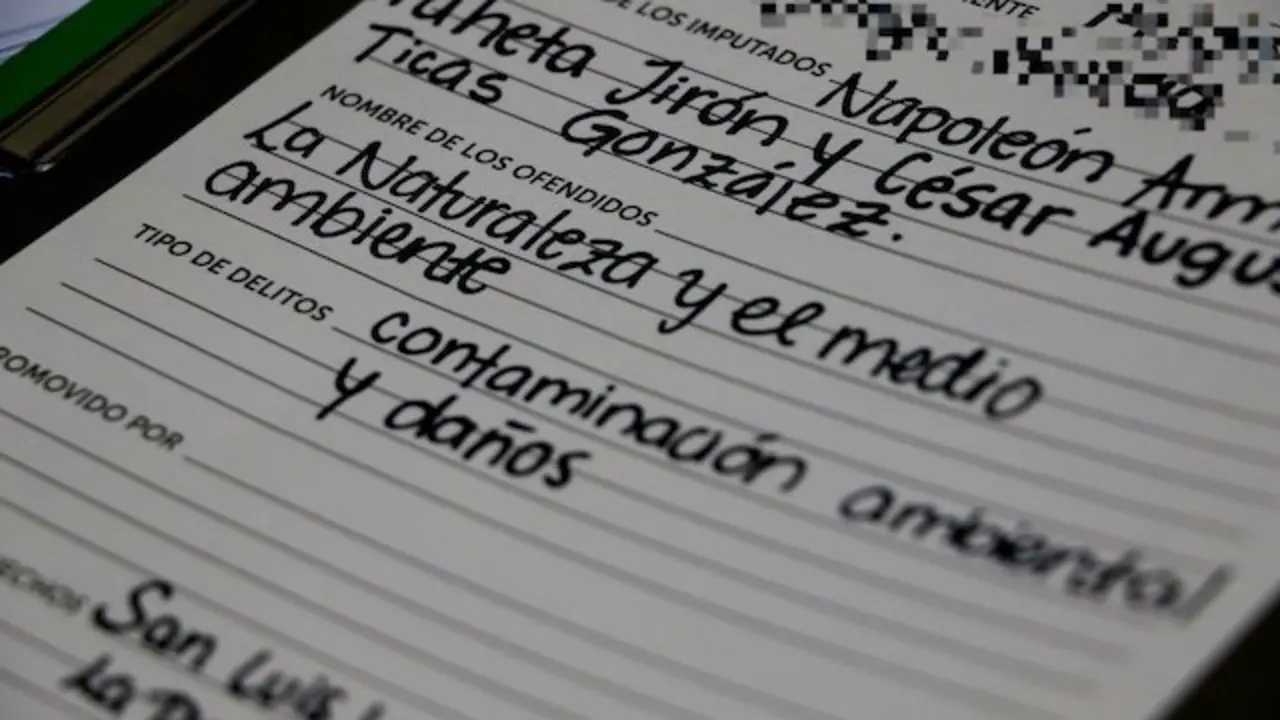 DE LOS IMPUTADOS Napoleón Arm
Jirón y César Augus
Ticas González.
NOMBRE DE LOS OFENDIDOS
La Naturaleza y el medio
ambiente
TIPO DE DELITOS contaminación ambiental
y daños
ROMOVIDO POR
ECHOS San Luis
La